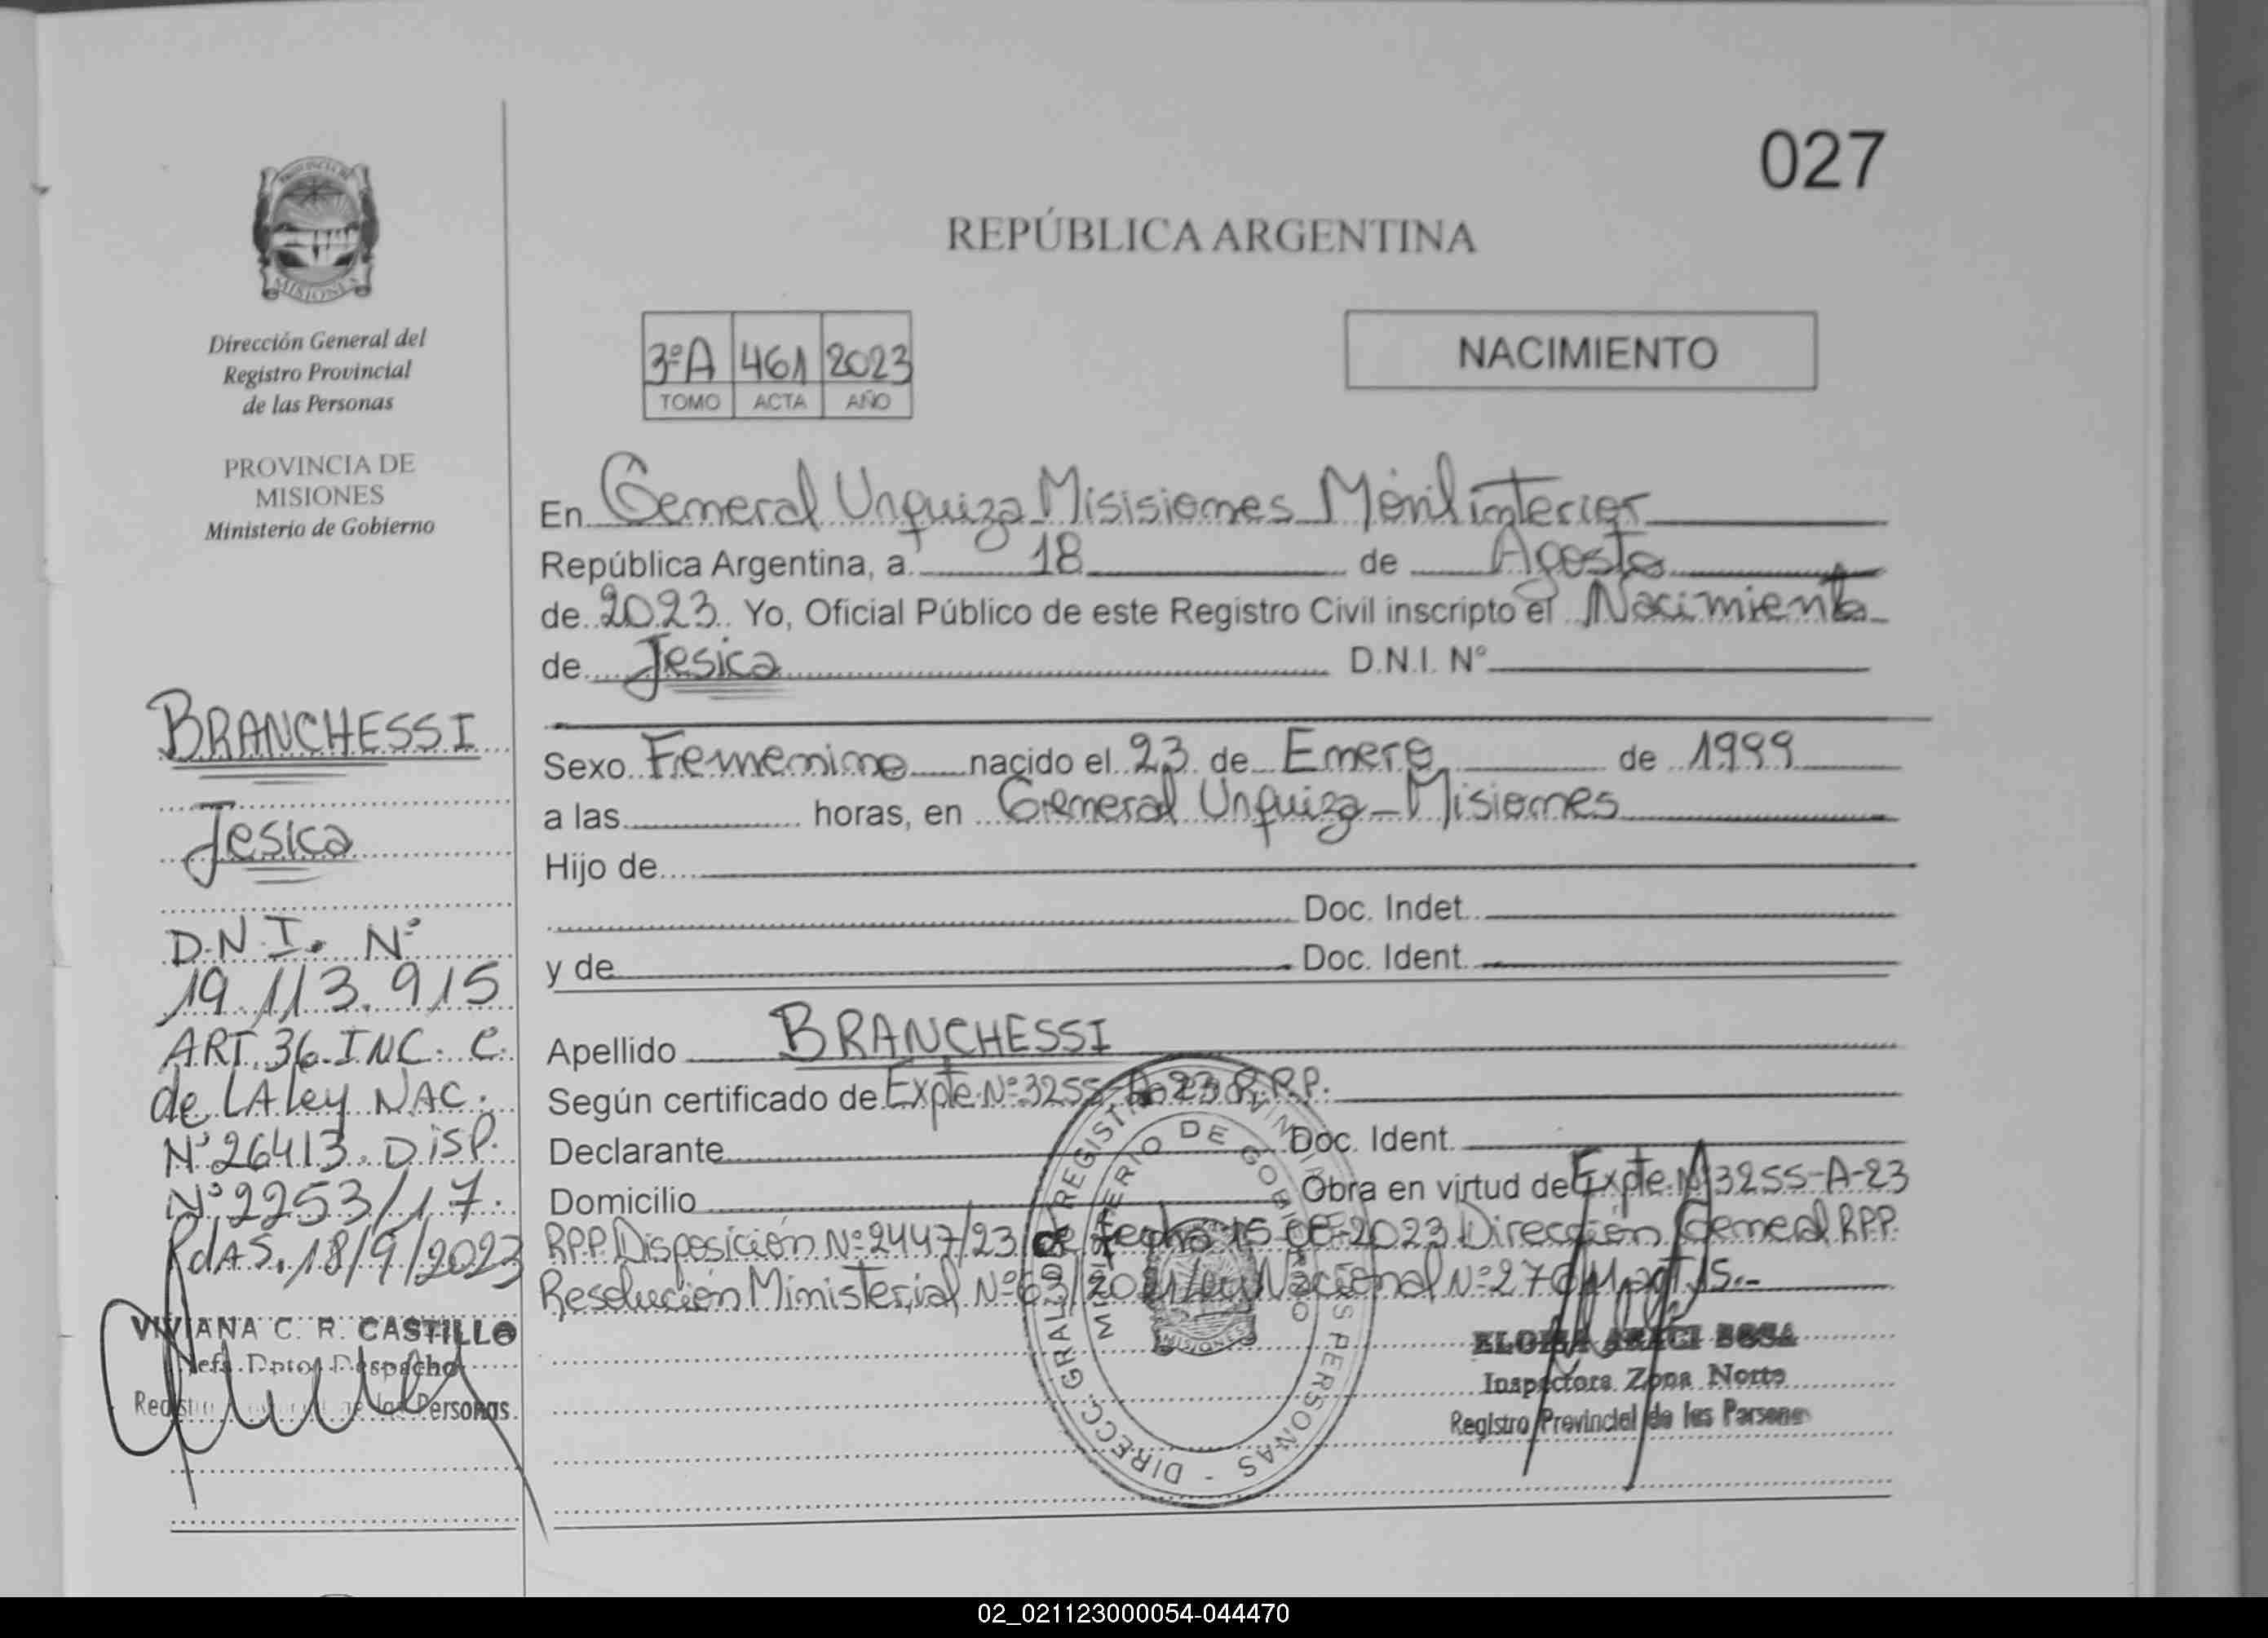 027
REPÚBLICA ARGENTINA
MISIONES
Dirección General del
Registro Provincial
de las Personas
PROVINCIA DE
MISIONES
Ministerio de Gobierno
3ºA 461 2023
TOMO ACTA AÑO
NACIMIENTO
En General Urquiza Misisiones Móvil interior
República Argentina, a 18 de Agosto
de 2023. Yo, Oficial Público de este Registro Civil inscripto el Nacimiento
de Jesica D.N.I. Nº
Sexo Femenino nacido el 23 de Enero de 1999
a las horas, en General Urquiza - Misiones
Hijo de
Doc. Indet.
y de Doc. Ident.
Apellido BRANCHESSI
Según certificado de Expte Nº 3255-A-23 R.P.P.
Declarante Doc. Ident.
Domicilio Obra en virtud de Expte. Nº 3255-A-23
RPP. Disposición Nº 2447/23 de fecha 15-08-2023 Dirección General RPP.
Resolución Ministerial Nº 63/2021 Ley Nacional Nº 27611 art 15.-
BRANCHESSI
Jesica
D.N.I. Nº
19.113.915
ART. 36. INC. C.
de LA ley NAC.
Nº 26413. DISP.
Nº 2253/17.
PdAS. 18/9/2023
VIVIANA C. R. CASTILLO
Jefa Dpto. Despacho
Registro de las Personas
DIRECC. GRAL. DE REGISTRO PROVINCIAL DE LAS PERSONAS -
MINISTERIO DE GOBIERNO
MISIONES
ELOISA ARACI SOSA
Inspectora Zona Norte
Registro Provincial de las Personas
02_021123000054-044470